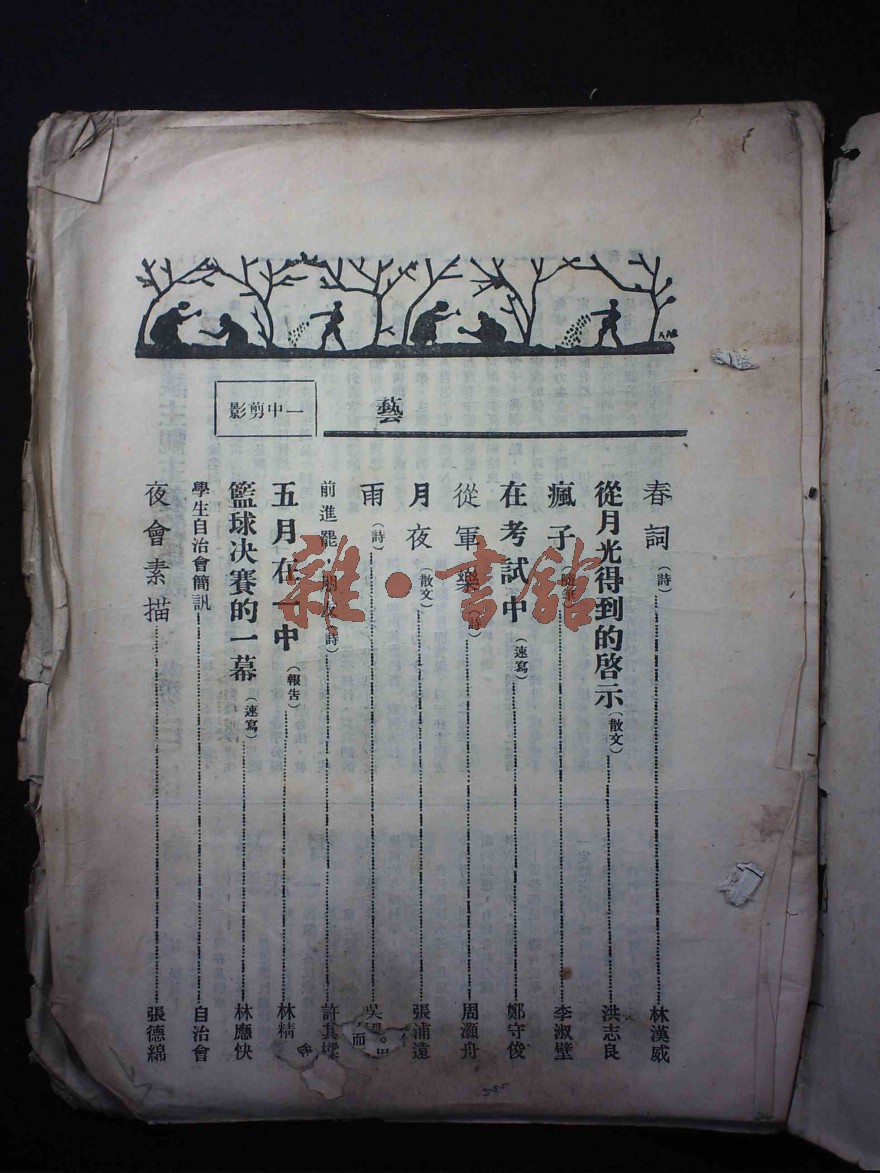 藝
一中剪影
春詞（詩） 林漢威
從月光得到的啓示（散文） 洪志良
瘋子（隨筆） 李淑璧
在考試中（速寫） 鄭守俊
從軍樂 周灝舟
月夜（散文） 張浦遠
雨（詩） 吳
前進罷，朋友（詩） 許其樑
五月在一中（報告） 林精
籃球決賽的一幕（速寫） 林應快
學生自治會簡訊 自治會
夜會素描 張德綿
雜·書館
而